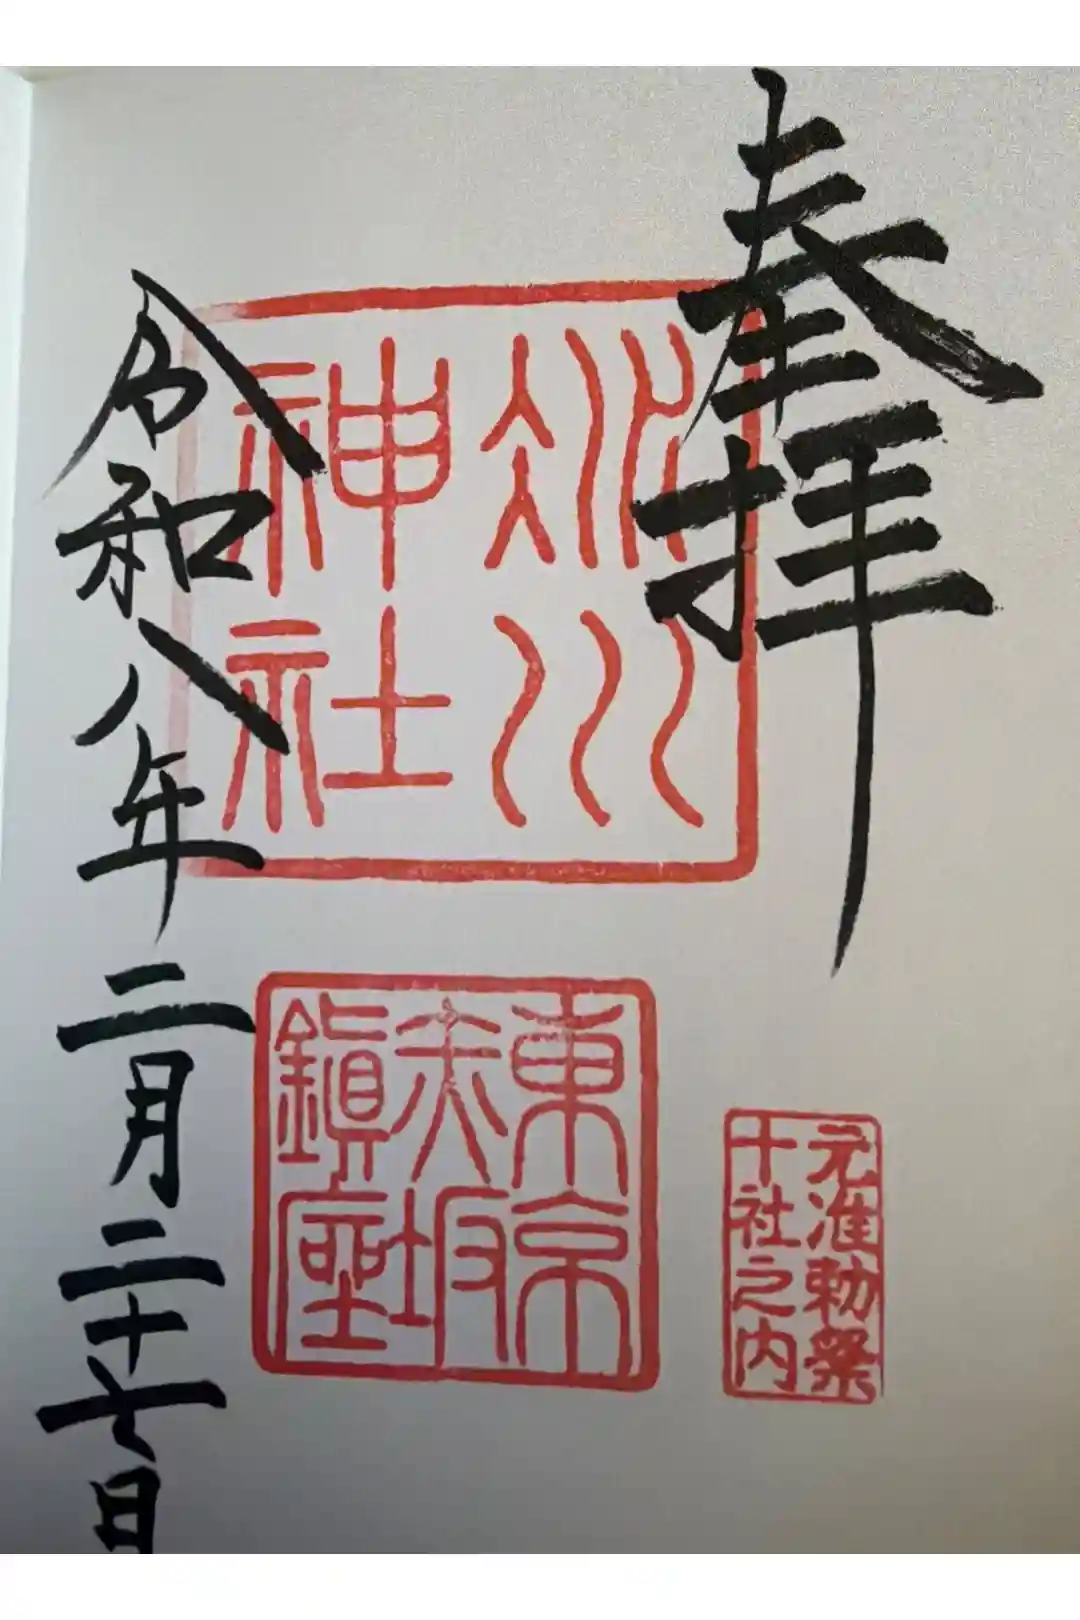 奉拝
氷川
神社
東京
赤坂
鎮座
元准勅祭
十社之内
令和八年二月二十七日